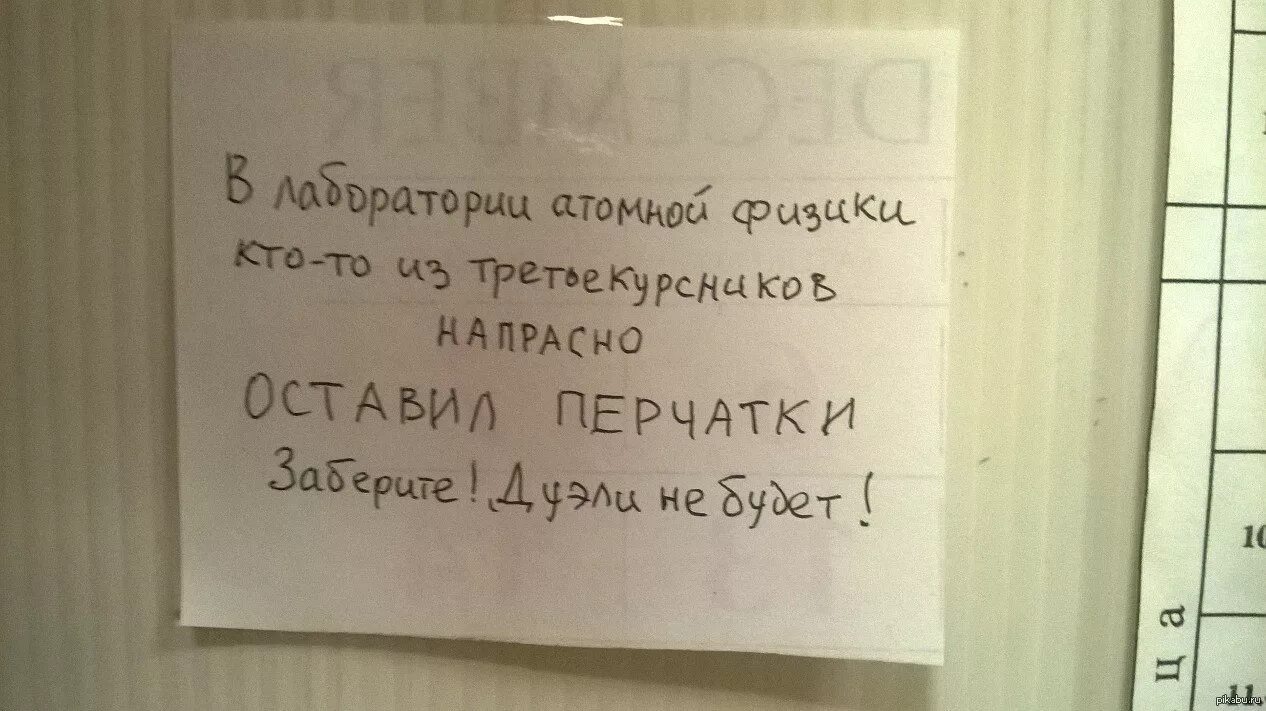 DECEMBER
В лаборатории атомной физики
кто-то из третьекурсников
НАПРАСНО
ОСТАВИЛ ПЕРЧАТКИ
Заберите! Дуэли не будет!
ц а
10
11.
pikabu.ru